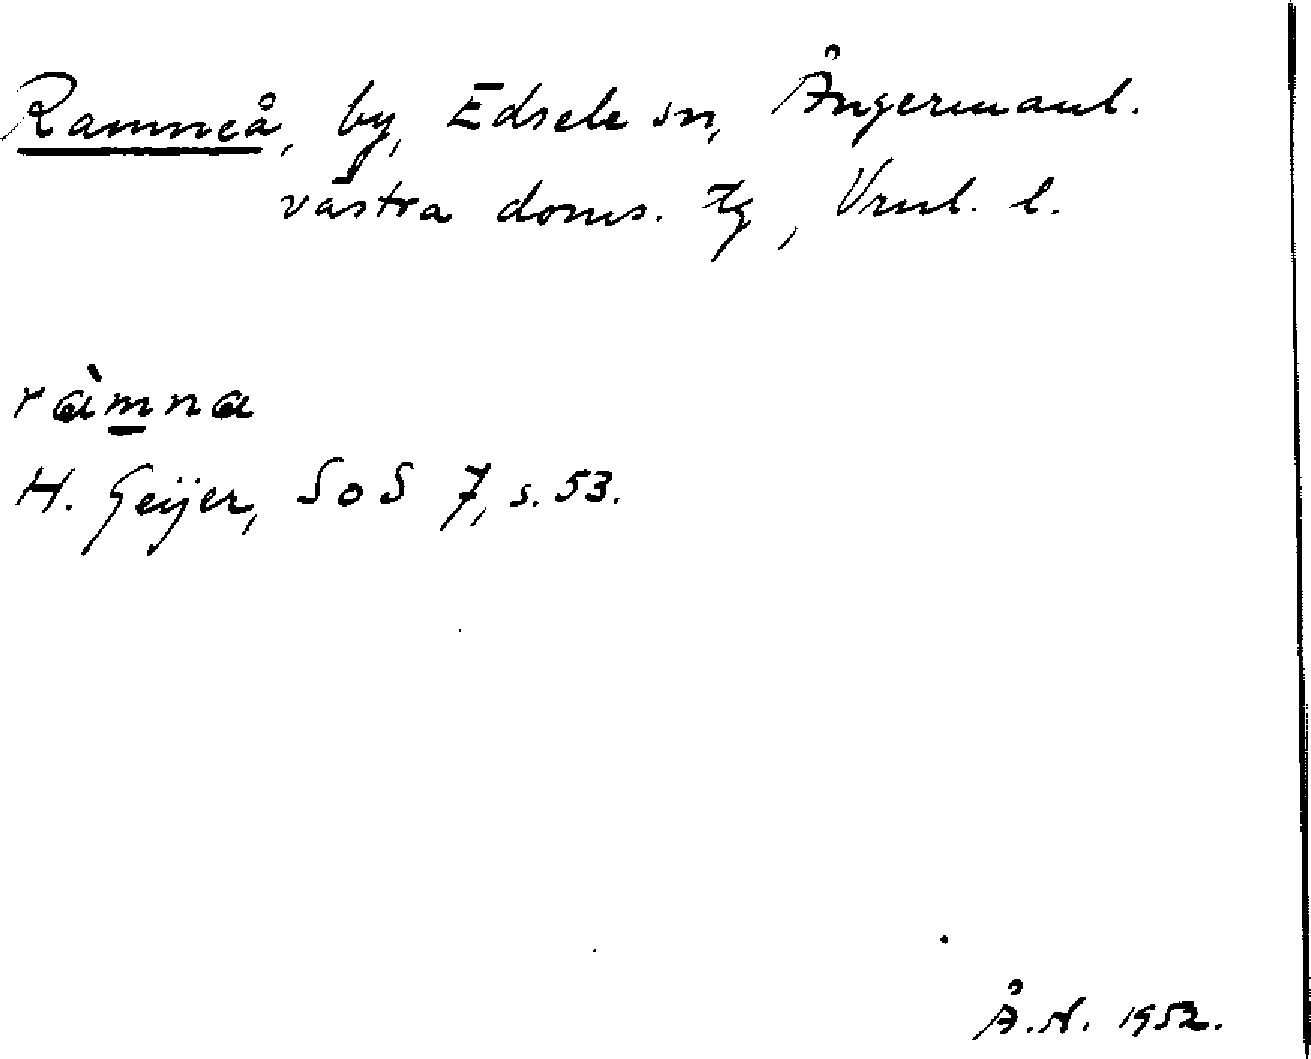 Ramneå, by, Edsele sn, Ångermanl.
västra doms. tg, Vrnl. l.
ràmna
H. Geijer, SoS 7, s. 53.
Å.N. 1952.